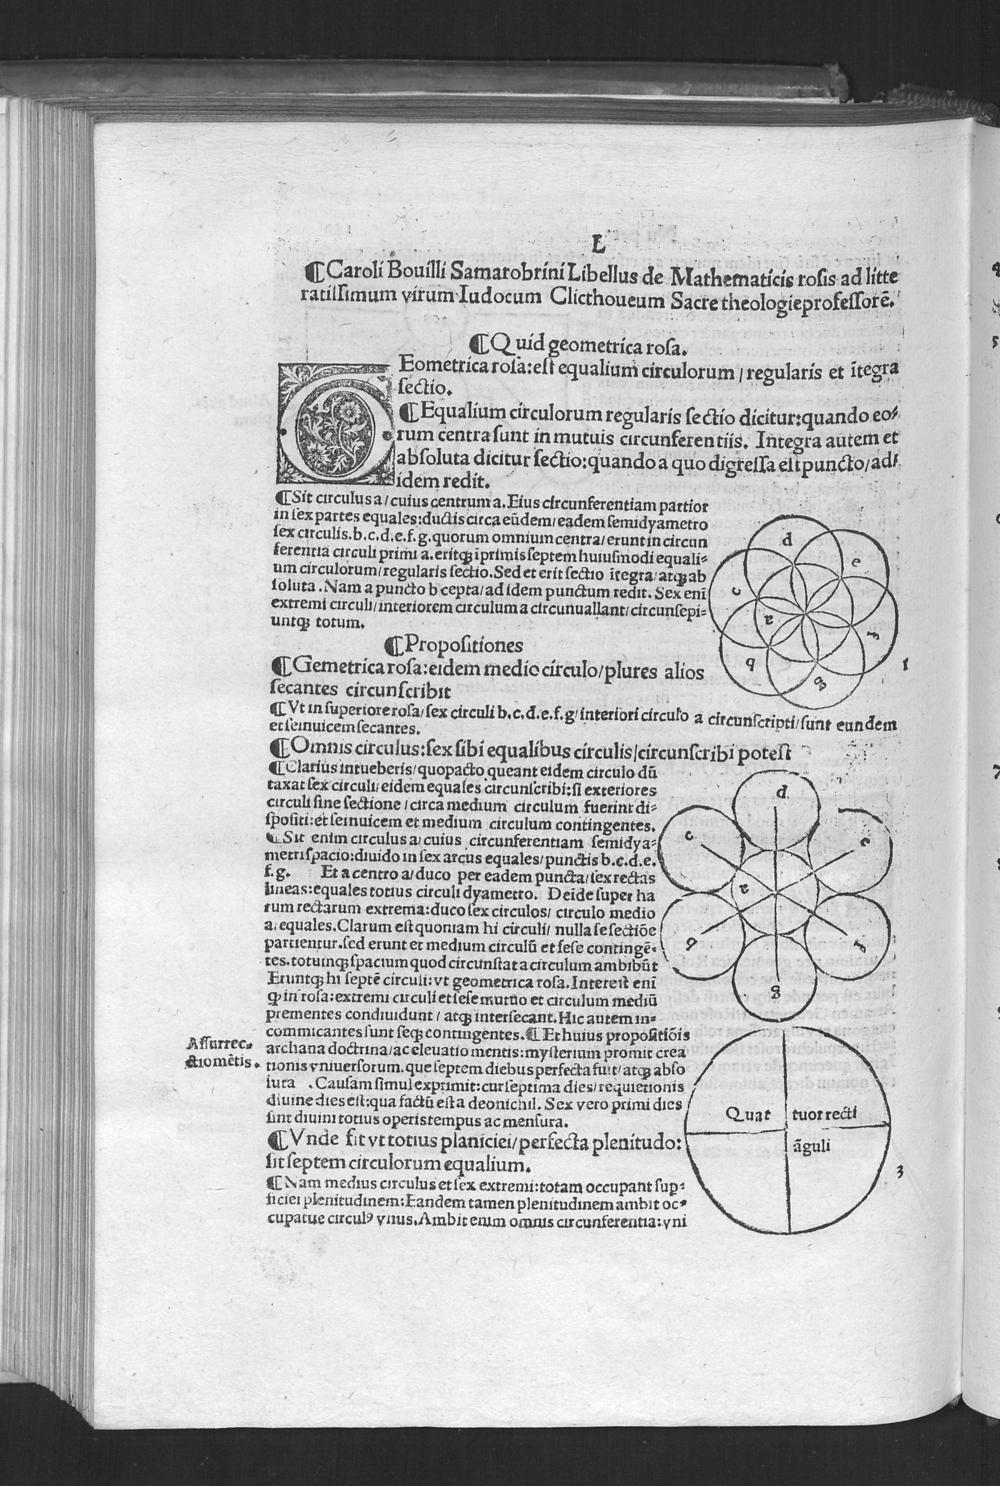 L
¶Caroli Bouilli Samarobrini Libellus de Mathematicis rosis ad litte
ratissimum virum Iudocum Clicthoueum Sacre theologie professorē.
¶Quid geometrica rosa.
GEometrica rosa: est equalium circulorum / regularis et ītegra
sectio.
¶Equalium circulorum regularis sectio dicitur: quando eo⸗
rum centra sunt in mutuis circunferentiis. Integra autem et
absoluta dicitur sectio: quando a quo digressa est puncto / ad/
idem redit.
¶Sit circulus a / cuius centrum a. Eius circunferentiam partior
in sex partes equales: ductis circa eūdem / eadem semidyametro
sex circulis. b.c.d.e.f.g. quorum omnium centra / erunt in circun
ferentia circuli primi a. eritqꝫ īprimis septem huiusmodi equali⸗
um circulorum / regularis sectio. Sed et erit sectio ītegra / atqꝫ ab
soluta. Nam a puncto b cepta / ad idem punctum redit. Sex enī
extremi circuli / interiorem circulum a circunuallant / circunsepi⸗
untqꝫ totum.
d
e
c
a
f
b
g
1
¶Propositiones
¶Gemetrica rosa: eidem medio circulo / plures alios
secantes circunscribit
¶Vt in superiore rosa / sex circuli b.c.d.e.f.g / interiori circulo a circunscripti / sunt eundem
et seinuicem secantes.
¶Omnis circulus: sex sibi equalibus circulis / circunscribi potest
¶Clarius intueberis / quo pacto queant eidem circulo dū
taxat sex circuli / eidem equales circunscribi: si exteriores
circuli sine sectione / circa medium circulum fuerint di⸗
spositi: et seinuicem et medium circulum contingentes.
¶Sit enim circulus a / cuius circunferentiam semidya⸗
metri spacio: diuido in sex arcus equales / punctis b.c.d.e.
f.g. Et a centro a / duco per eadem puncta / sex rectas
lineas: equales totius circuli dyametro. Deide super ha
rum rectarum extrema: duco sex circulos / circulo medio
a / equales. Clarum est quoniam hi circuli / nulla se sectiōe
partientur. sed erunt et medium circulū et sese contingē⸗
tes. totumqꝫ spacium quod circunstat a circulum ambibūt
Eruntqꝫ hi septē circuli: vt geometrica rosa. Interest enī
ꝙ in rosa: extremi circuli et sese mutuo et circulum mediū
prementes condiuidunt / atqꝫ intersecant. Hic autem in⸗
commicantes sunt seqꝫ contingentes. ¶Et huius propositiōis
archana doctrina / ac eleuatio mentis: mysterium promit crea
tionis vniuersorum. que septem diebus perfecta fuit / atqꝫ abso
luta . Causam simul exprimit: cur septima dies / requietionis
diuine dies est: qua factū est a deo nichil. Sex vero primi dies
sint diuini totius operis tempus ac mensura.
Assurrec⸗
ctio mētis.
d
c
e
a
b
f
g
¶Vnde fit vt totius planiciei / perfecta plenitudo:
sit septem circulorum equalium.
¶Nam medius circulus et sex extremi: totam occupant sup⸗
ficiei plenitudinem: Eandem tamen plenitudinem ambit oc⸗
cupatue circulꝰ vnus. Ambit enim omnis circunferentia: vni
Quat tuor recti
āguli
3